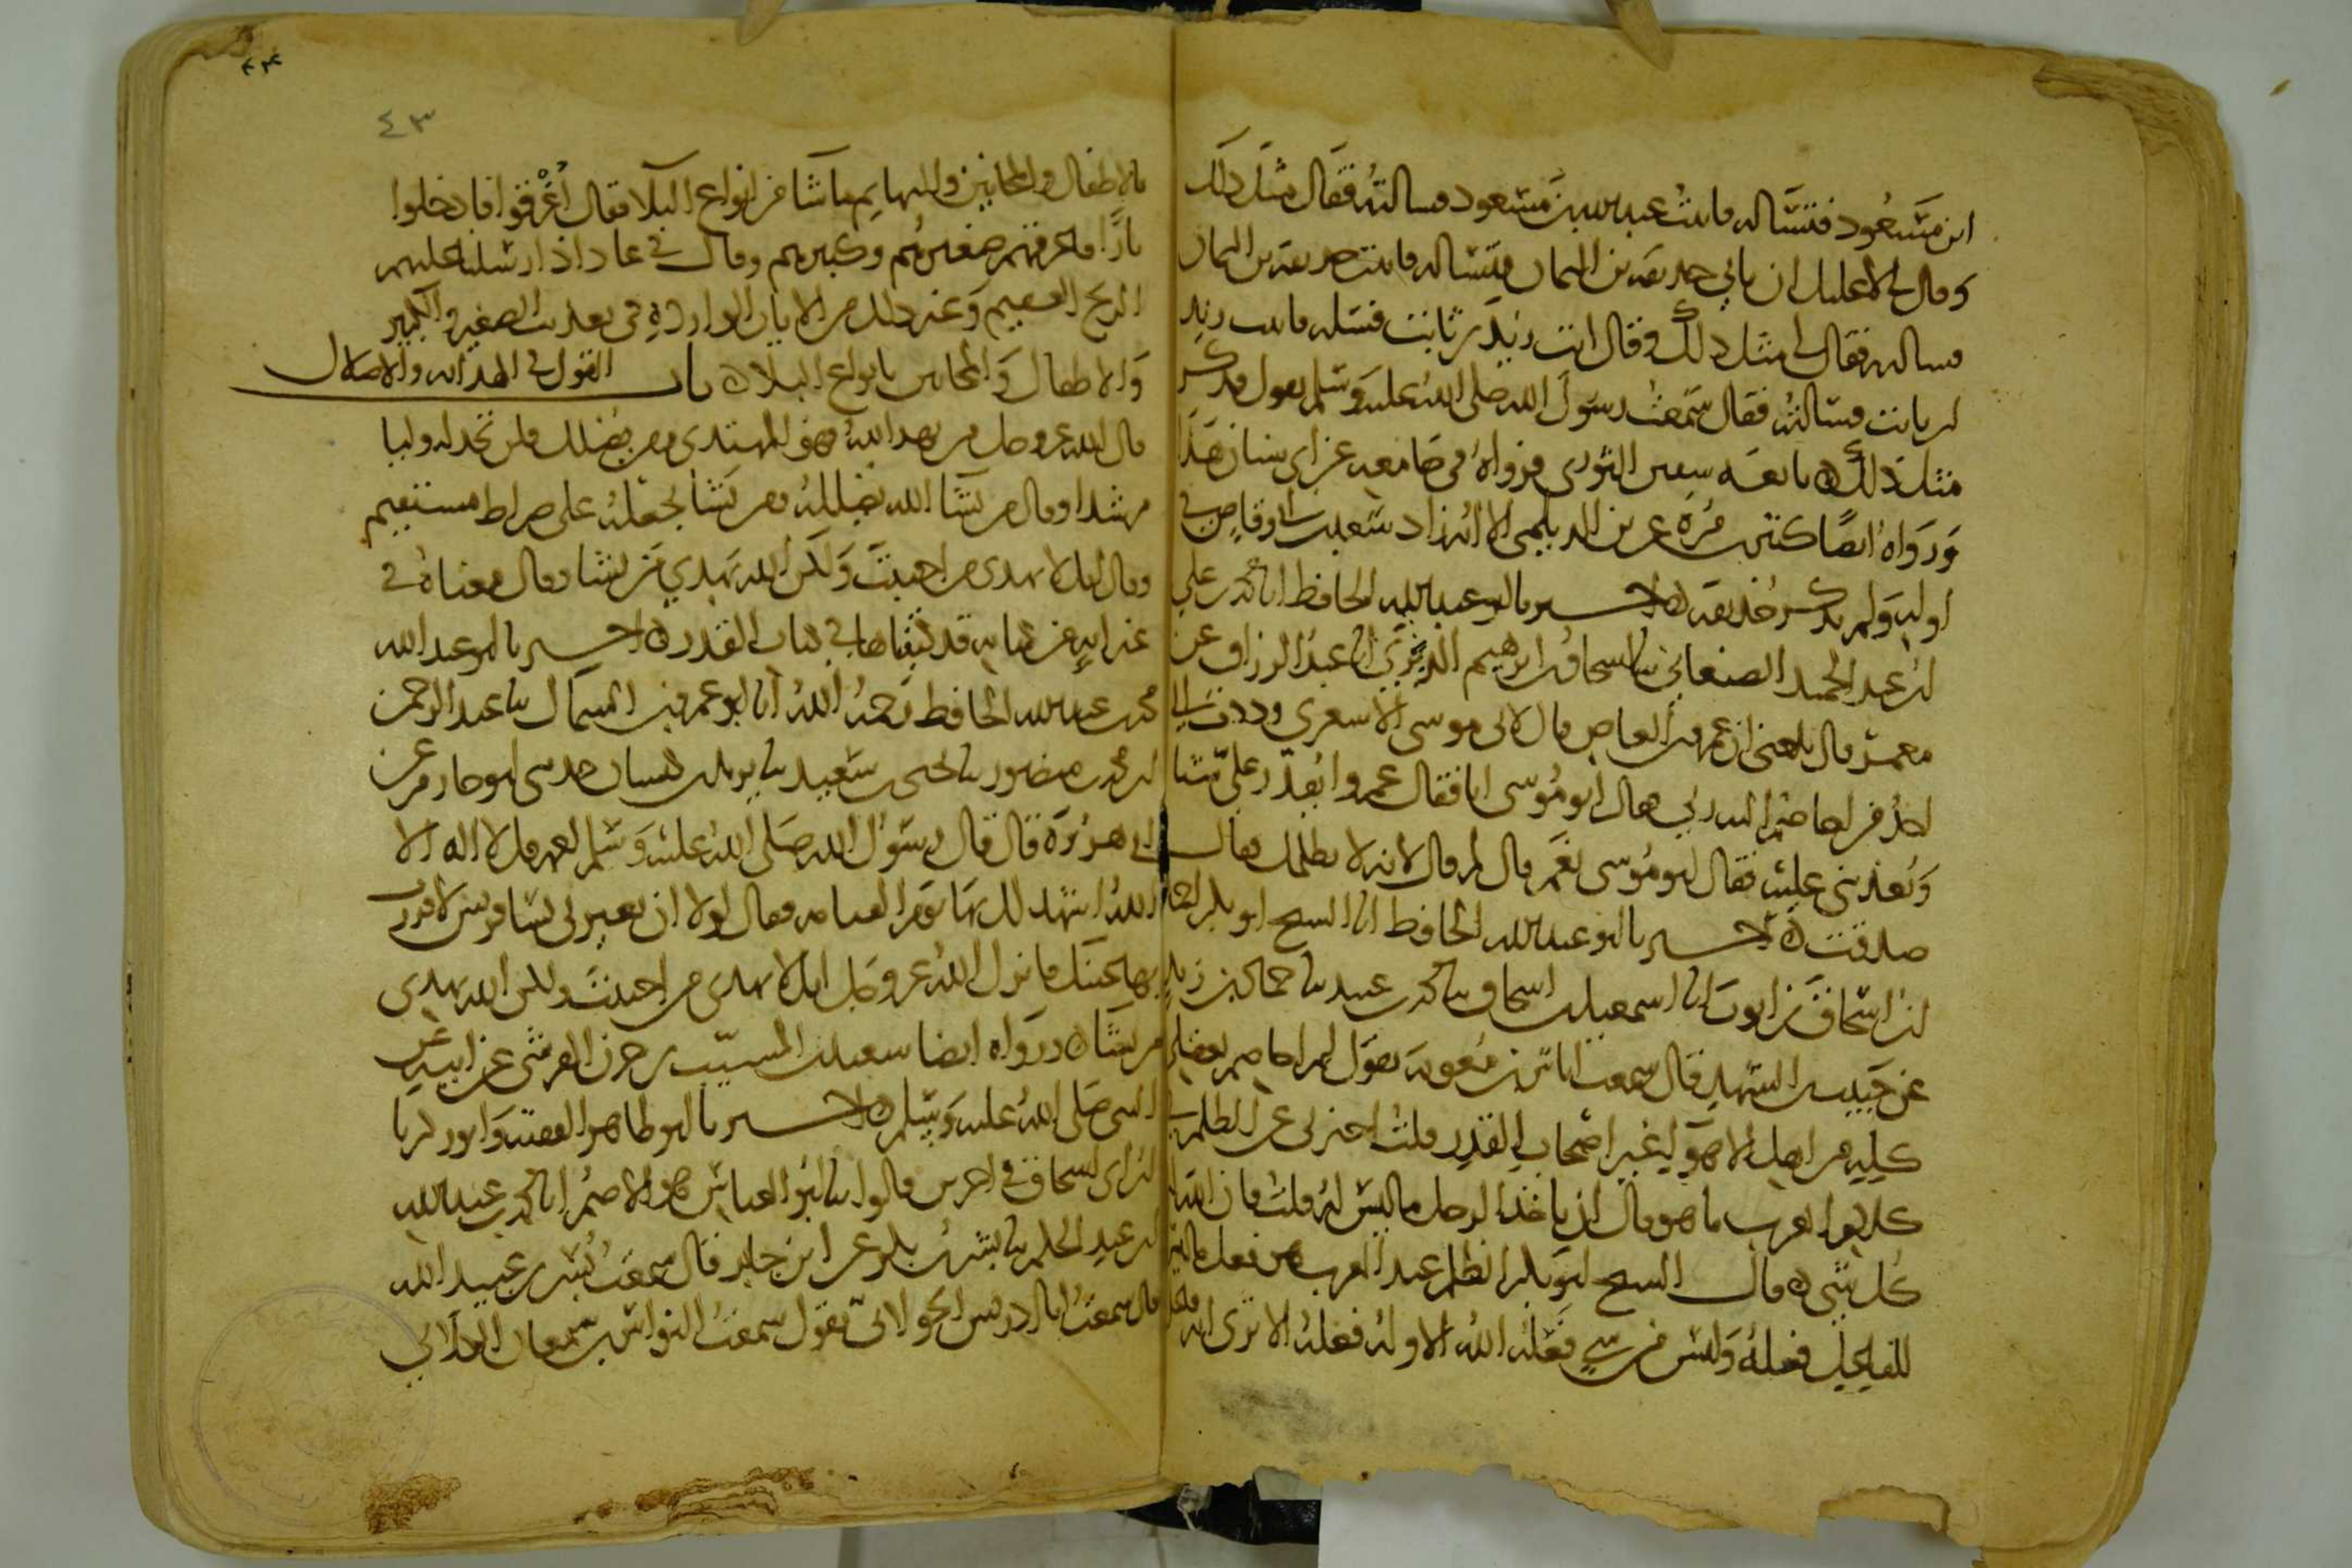 ابن مسعود فتساله فاتيت عبد الله بن مسعود فسالته فقال مثل ذلك
وقال لي لا عليك ان تاتي حذيفة بن اليمان فتساله فاتيت حذيفة بن اليمان
فسالته فقال لي مثل ذلك وقال ائت زيد بن ثابت فسله فاتيت زيد
بن ثابت فسالته فقال سمعت رسول الله صلى الله عليه وسلم يقول فذكر
مثل ذلك ه تابعه سفين الثوري فرواه في جامعه عن ابي سنان هكذا
ورواه ايضا كثير بن مرة عن بن الديلمي الا انه زاد سعد بن ابي وقاص في
اوله ولم يذكر حذيفة ه اخبرنا ابو عبد الله الحافظ انا محمد بن علي
بن عبد الحميد الصنعاني ثنا اسحاق بن ابرهيم الدبري انا عبد الرزاق عن
معمر قال بلغني ان عمرو بن العاص قال لابي موسى الاشعري وددت اني
اجد من اخاصم اليه ربي فقال ابو موسى انا فقال عمرو ايقدر علي شيا
ويعذبني عليه فقال ابو موسى نعم قال لم قال لانه لا يظلمك فقال
صدقت ه اخبرنا ابو عبد الله الحافظ انا الشيخ ابو بكر احمد
بن اسحاق بن ايوب انا اسمعيل بن اسحاق ثنا محمد بن عبيد ثنا حماد بن زيد
عن حبيب بن الشهيد قال سمعت اياس بن معوية يقول لم اخاصم بعقلي
كله من اهل الاهواء غير اصحاب القدر قلت اخبرني عن الظلم في
كلام العرب ما هو قال ان ياخذ الرجل ما ليس له قلت فان لله
كل شي ه قال الشيخ ابو بكر الظلم عند العرب هو فعل ما ليس
للفاعل فعله وليس من شي فعله الله الا وله فعله الا ترى انه فعل
٤٣
بالاطفال والمجانين والبهايم ما شا من انواع البلا فقال اغرقوا فادخلوا
نارا فاغرقهم صغيرهم وكبيرهم وقال في عاد اذ ارسلنا عليهم
الريح العقيم وغير ذلك من الايات الواردة في تعذيب الصغير والكبير
والاطفال والمجانين بانواع البلا ه باب القول في الهداية والاضلال
قال الله عز وجل من يهد الله فهو المهتدي ومن يضلل فلن تجد له وليا
مرشدا وقال من يشا الله يضلله ومن يشا يجعله على صراط مستقيم
وقال انك لا تهدي من احببت ولكن الله يهدي من يشا وقال معناه في
غير اية من كتابه قد كتبناها في كتاب القدر ه اخبرنا ابو عبد الله
محمد بن عبد الله الحافظ رحمه الله انا ابو عمرو بن السماك ثنا عبد الرحمن
بن محمد بن منصور ثنا يحيى بن سعيد ثنا يزيد بن كيسان حدثني ابو حازم عن
ابي هريرة قال قال رسول الله صلى الله عليه وسلم لعمه قل لا اله الا
الله اشهد لك بها يوم القيامة فقال لولا ان تعيرني نسا قريش لاقررت
بها عينك فانزل الله عز وجل انك لا تهدي من احببت ولكن الله يهدي
من يشا ه ورواه ايضا سعيد بن المسيب بن حزن القرشي عن ابيه عن
النبي صلى الله عليه وسلم ه اخبرنا ابو طاهر الفقيه وابو زكريا
بن ابي اسحاق في اخرين قالوا ثنا ابو العباس هو الاصم انا محمد بن عبد الله
بن عبد الحكم ثنا بشر بن بكر عن ابن جابر قال سمعت بسر بن عبيد الله
قال سمعت ابا ادريس الخولاني يقول سمعت النواس بن سمعان الكلابي